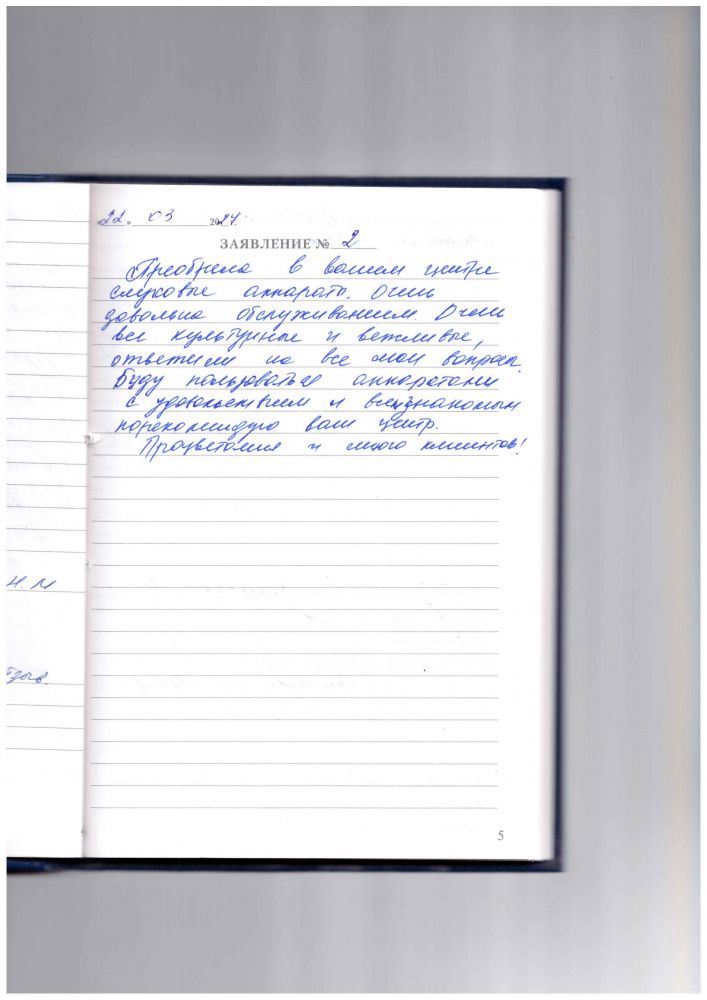 «22» 03 2024г.
ЗАЯВЛЕНИЕ № 2
Преобрела в вашем центре
слуховые аппараты. Очень
довольна обслуживанием. Очень
все культурные и вежливые,
ответили на все мои вопросы.
Буду пользоваться аппаратами
с удовольствием и всем знакомым
порекомендую ваш центр.
Процветания и много клиентов!
Н. М
тзыв.
5